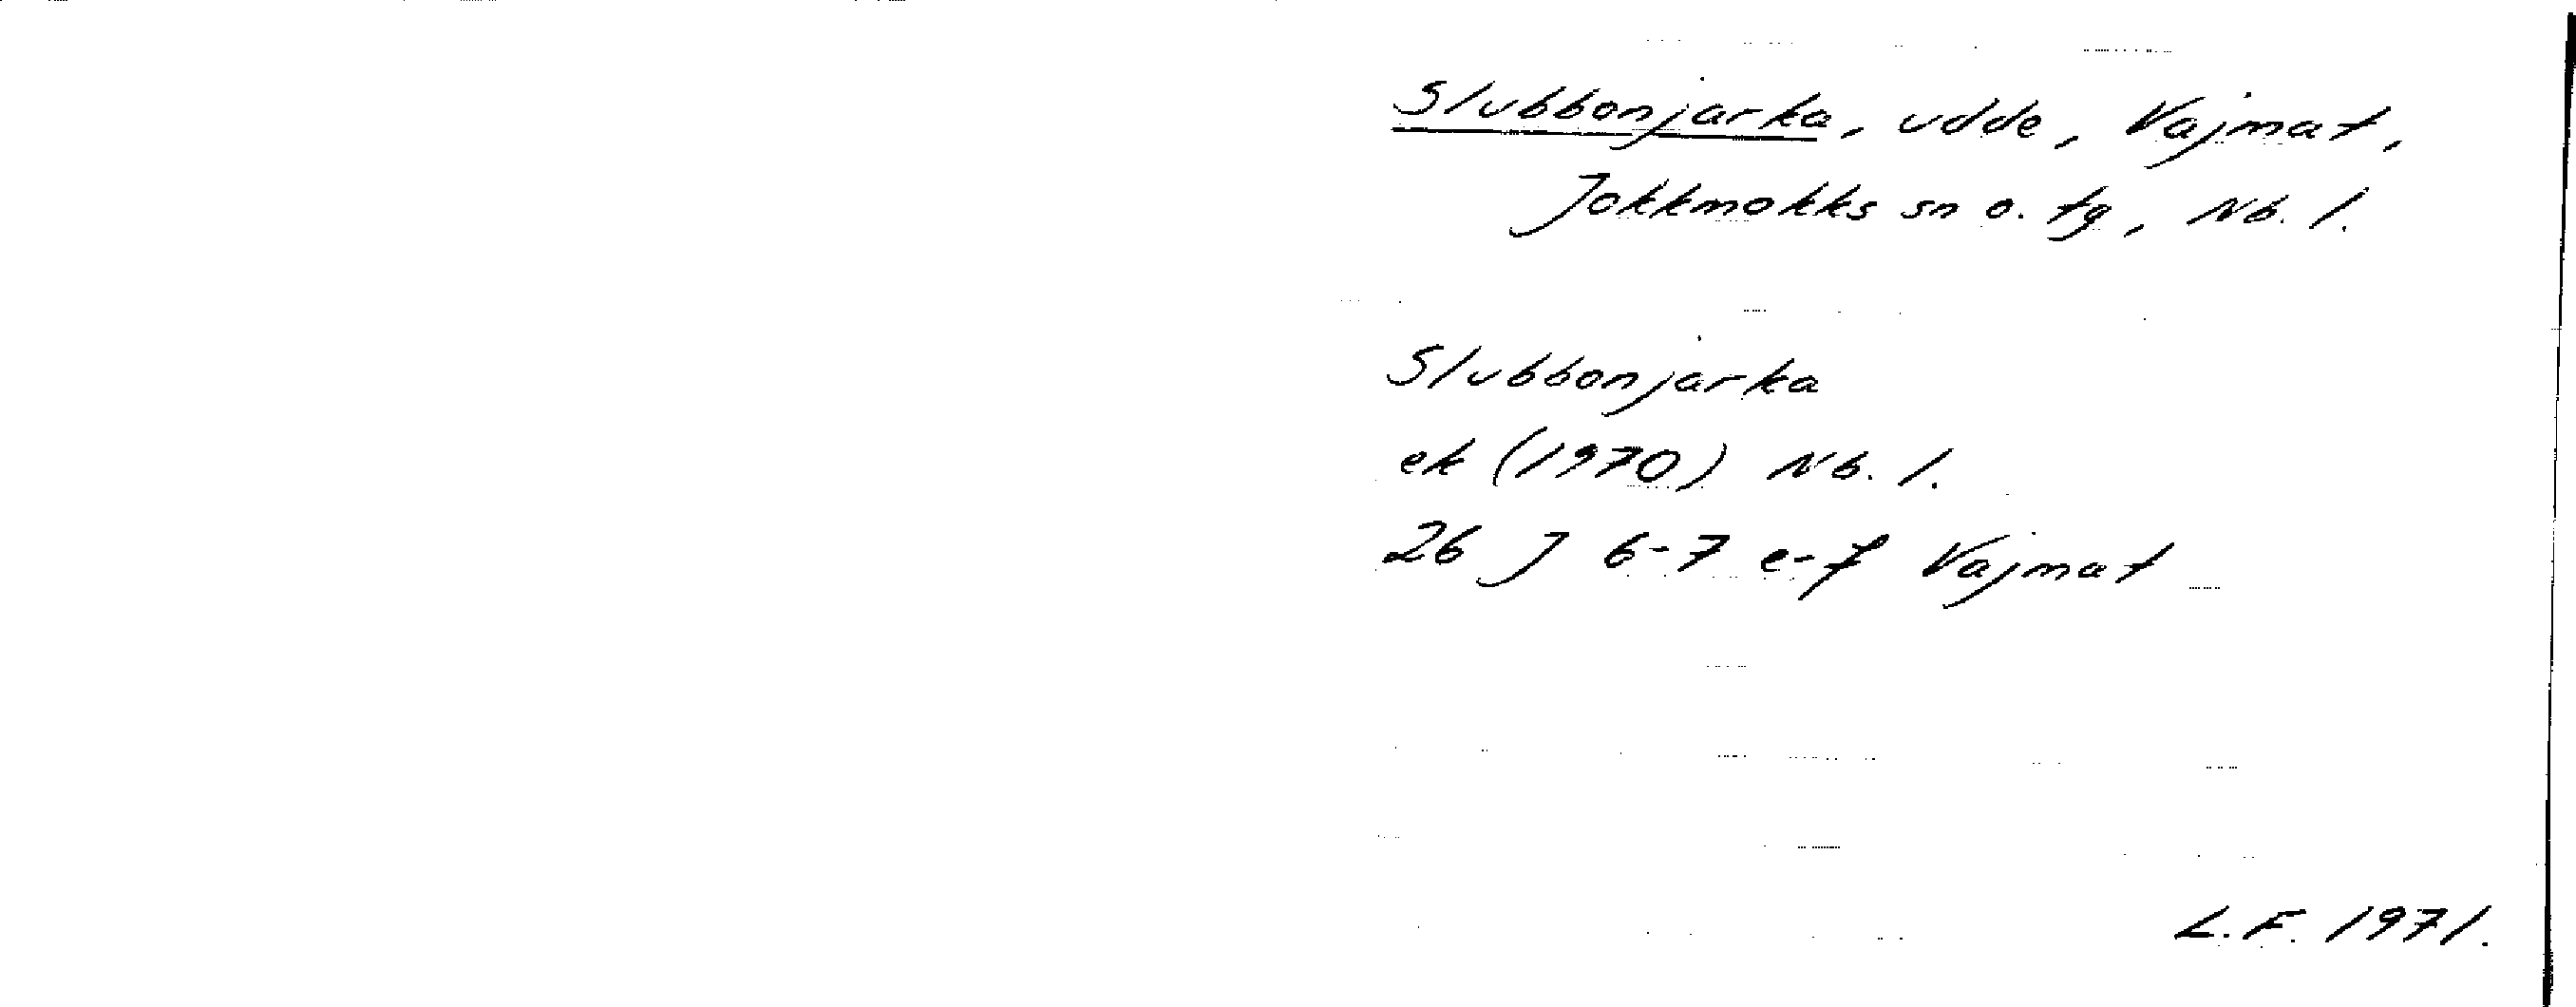 Slubbonjarka, udde, Vajmat,
Jokkmokks sn o. tg, Nb. l.
Slubbonjarka
ek (1970) Nb. l.
26 J 6-7 e-f Vajmat
L.F. 1971.